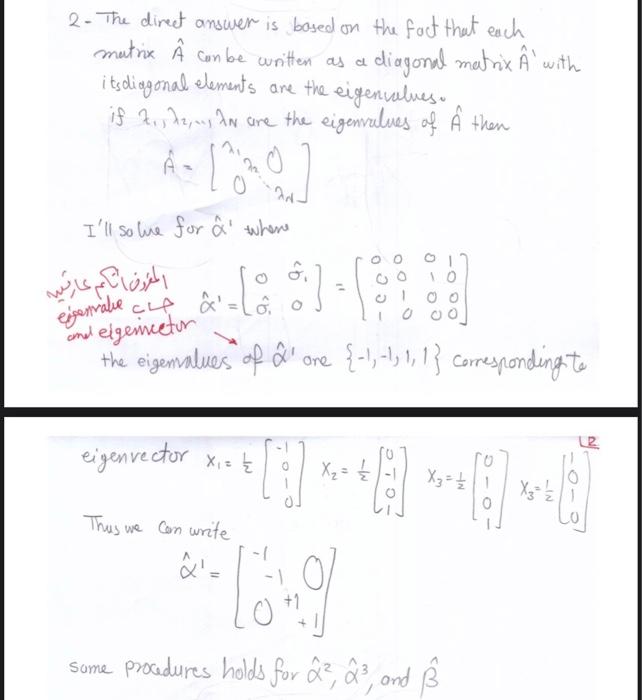 2- The direct answer is based on the fact that each
matrix Â can be written as a diagonal matrix Â' with
its diagonal elements are the eigenvalues.
if λ₁, λ₂, ..., λN are the eigenvalues of Â then
Â = [λ₁ λ₂ 0
0 λN]
I'll solve for α̂' where
المفروض انكم عارفين
حساب eigenvalue
and eigenvector
α̂' = [0 σ̂₁
σ̂₁ 0] = [0 0 0 1
0 0 1 0
0 1 0 0
1 0 0 0]
the eigenvalues of α̂' are {-1, -1, 1, 1} corresponding to
L2
eigenvector X₁ = ½ [-1 0 1 0] X₂ = ½ [0 -1 0 1] X₃ = ½ [0 1 0 1] X₃ = ½ [1 0 1 0]
Thus we can write
α̂' = [-1
-1 0
0 +1
+1]
same procedures holds for α̂², α̂³, and β̂